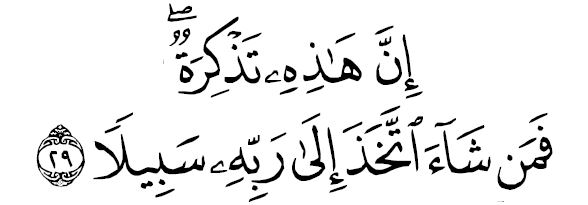 إِنَّ هَٰذِهِۦ تَذْكِرَةٌ ۖ
فَمَن شَآءَ ٱتَّخَذَ إِلَىٰ رَبِّهِۦ سَبِيلًا ٢٩